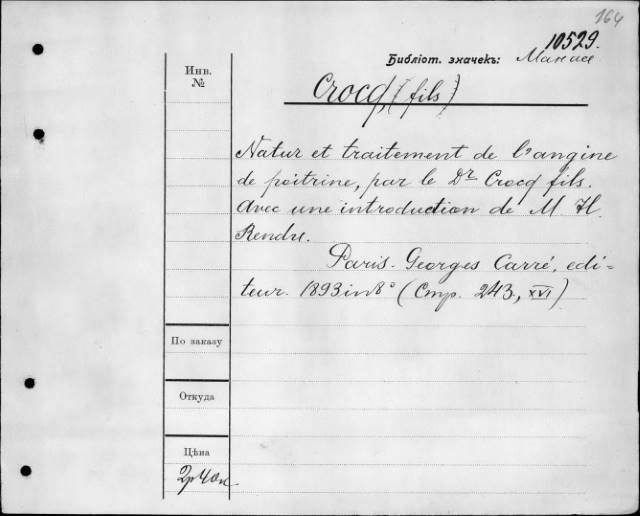 164
10529.
Библіот. значекъ:
Инв.
№
Crocq, (fils)
Natur et traitement de l'angine
de poitrine, par le Dr Crocq fils.
Avec une introduction de M. H.
Rendu.
Paris. Georges Carré, edi=
teur. 1893 in 8° (Стр. 243, XVI)
По заказу
Откуда
Цѣна
2р 40к